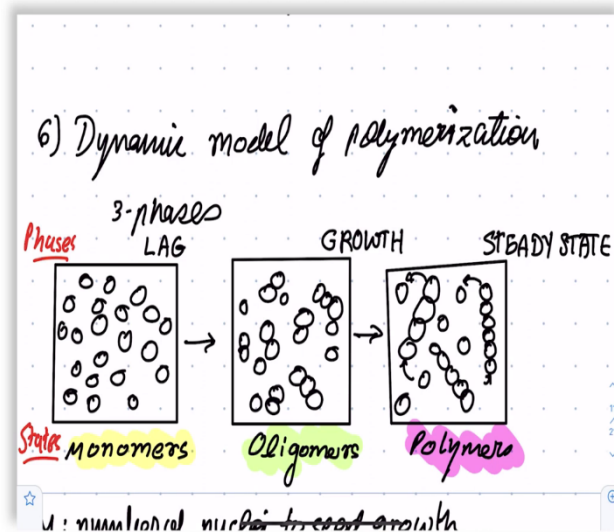 6) Dynamic model of polymerization
3-phases
Phases LAG GROWTH STEADY STATE
States Monomers Oligomers Polymers
growth